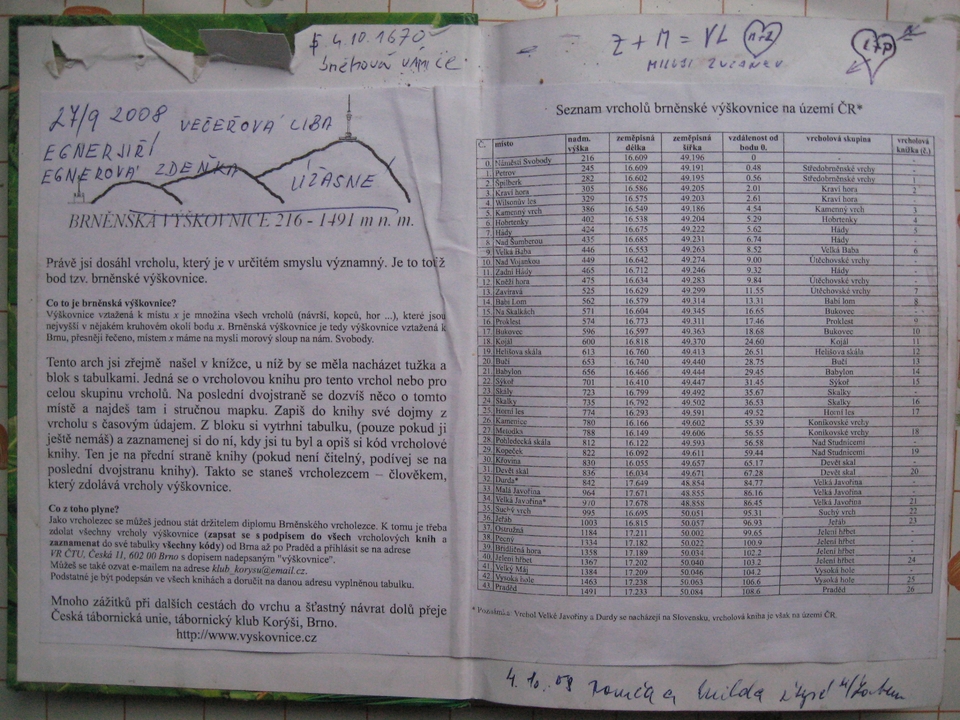 4.10.1670
27/9 2008 VEČEŘOVÁ LIBA
EGNER JIŘÍ
EGNEROVÁ ZDEŇKA
ÚŽASNE
BRNĚNSKÁ VÝŠKOVNICE 216 - 1491 m n. m.
Právě jsi dosáhl vrcholu, který je v určitém smyslu významný. Je to totiž
bod tzv. brněnské výškovnice.
Co to je brněnská výškovnice?
Výškovnice vztažená k místu x je množina všech vrcholů (návrší, kopců, hor ...), které jsou
nejvyšší v nějakém kruhovém okolí bodu x. Brněnská výškovnice je tedy výškovnice vztažená k
Brnu, přesněji řečeno, místem x máme na mysli morový sloup na nám. Svobody.
Tento arch jsi zřejmě našel v knížce, u níž by se měla nacházet tužka a
blok s tabulkami. Jedná se o vrcholovou knihu pro tento vrchol nebo pro
celou skupinu vrcholů. Na poslední dvojstraně se dozvíš něco o tomto
místě a najdeš tam i stručnou mapku. Zapiš do knihy své dojmy z
vrcholu s časovým údajem. Z bloku si vytrhni tabulku, (pouze pokud ji
ještě nemáš) a zaznamenej si do ní, kdy jsi tu byl a opiš si kód vrcholové
knihy. Ten je na přední straně knihy (pokud není čitelný, podívej se na
poslední dvojstranu knihy). Takto se staneš vrcholezcem – člověkem,
který zdolává vrcholy výškovnice.
Co z toho plyne?
Jako vrcholezec se můžeš jednou stát držitelem diplomu Brněnského vrcholezce. K tomu je třeba
zdolat všechny vrcholy výškovnice (zapsat se s podpisem do všech vrcholových knih a
zaznamenat do své tabulky všechny kódy) od Brna až po Praděd a přihlásit se na adrese
VR ČTU, Česká 11, 602 00 Brno s dopisem nadepsaným "výškovnice".
Můžeš se také ozvat e-mailem na adrese klub_korysu@email.cz.
Podstatné je být podepsán ve všech knihách a doručit na danou adresu vyplněnou tabulku.
Mnoho zážitků při dalších cestách do vrchu a šťastný návrat dolů přeje
Česká tábornická unie, tábornický klub Korýši, Brno.
http://www.vyskovnice.cz
Z + M = VL
Seznam vrcholů brněnské výškovnice na území ČR*
Č. místo nadm. výška zeměpisná délka zeměpisná šířka vzdálenost od bodu 0. vrcholová skupina vrcholová knížka (č.)
0. Náměstí Svobody 216 16.609 49.196 0 - -
1. Petrov 245 16.609 49.191 0.48 Středobrněnské vrchy -
2. Špilberk 282 16.602 49.195 0.56 Středobrněnské vrchy 1
3. Kraví hora 305 16.586 49.205 2.01 Kraví hora 2
4. Wilsonův les 329 16.575 49.203 2.61 Kraví hora -
5. Kamenný vrch 386 16.549 49.186 4.54 Kamenný vrch 3
6. Hobrtenky 402 16.538 49.204 5.29 Hobrtenky 4
7. Hády 424 16.675 49.222 5.62 Hády 5
8. Nad Šumberou 435 16.685 49.231 6.74 Hády -
9. Velká Baba 446 16.553 49.263 8.52 Velká Baba 6
10. Nad Vojankou 449 16.642 49.274 9.00 Útěchovské vrchy -
11. Zadní Hády 465 16.712 49.246 9.32 Hády -
12. Kněží hora 475 16.634 49.283 9.84 Útěchovské vrchy -
13. Zavíravá 525 16.629 49.299 11.55 Útěchovské vrchy 7
14. Babí Lom 562 16.579 49.314 13.31 Babí lom 8
15. Na Skalkách 571 16.604 49.345 16.65 Bukovec -
16. Proklest 574 16.773 49.311 17.46 Proklest 9
17. Bukovec 596 16.597 49.363 18.68 Bukovec 10
18. Kojál 600 16.818 49.370 24.60 Kojál 11
19. Helišova skála 613 16.760 49.413 26.51 Helišova skála 12
20. Bučí 653 16.740 49.440 28.75 Bučí 13
21. Babylon 656 16.466 49.444 29.45 Babylon 14
22. Sýkoř 701 16.410 49.447 31.45 Sýkoř 15
23. Skály 723 16.799 49.492 35.67 Skalky -
24. Skalky 735 16.792 49.502 36.53 Skalky 16
25. Horní les 774 16.293 49.491 49.52 Horní les 17
26. Kamenice 780 16.166 49.602 55.39 Koníkovské vrchy -
27. Metodka 788 16.149 49.606 56.55 Koníkovské vrchy 18
28. Pohledecká skála 812 16.122 49.593 56.58 Nad Studnicemi -
29. Kopeček 822 16.092 49.611 59.44 Nad Studnicemi 19
30. Křovina 830 16.055 49.657 65.17 Devět skal -
31. Devět skal 836 16.034 49.671 67.28 Devět skal 20
32. Durda* 842 17.649 48.854 84.77 Velká Javořina -
33. Malá Javořina 964 17.671 48.855 86.16 Velká Javořina -
34. Velká Javořina* 970 17.678 48.855 86.45 Velká Javořina 21
35. Suchý vrch 995 16.695 50.051 95.31 Suchý vrch 22
36. Jeřáb 1003 16.815 50.057 96.93 Jeřáb 23
37. Ostružná 1184 17.211 50.002 99.65 Jelení hřbet -
38. Pecný 1334 17.182 50.022 100.9 Jelení hřbet -
39. Břidličná hora 1358 17.189 50.034 102.2 Jelení hřbet -
40. Jelení hřbet 1367 17.202 50.040 103.2 Jelení hřbet 24
41. Velký Máj 1384 17.209 50.046 104.2 Vysoká hole -
42. Vysoká hole 1463 17.238 50.063 106.6 Vysoká hole 25
43. Praděd 1491 17.233 50.084 108.6 Praděd 26
* Poznámka: Vrchol Velké Javořiny a Durdy se nacházejí na Slovensku, vrcholová kniha je však na území ČR.
4.10.09